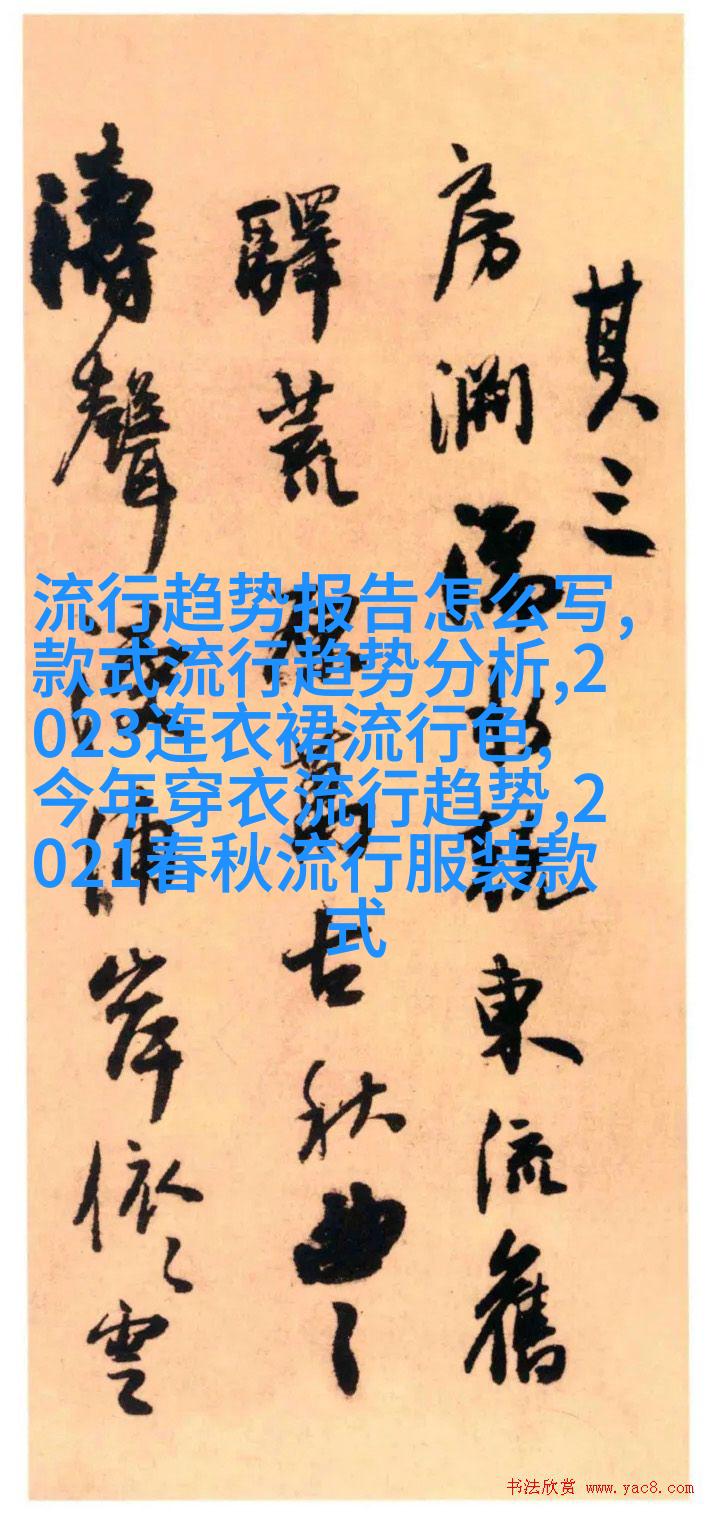 其三
房淵水東流舊
驛荒古秋曲〻
濤聲浦岸依〻雲
流行趋势报告怎么写,
款式流行趋势分析,2
023连衣裙流行色,
今年穿衣流行趋势,2
021春秋流行服装款
式
书法欣赏 www.yac8.com